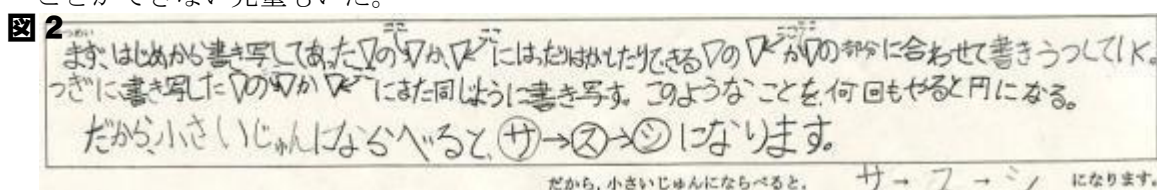 ことができない児童もいた。
図2
まず、はじめから書き写してあった▽の▽か、▽ ここ にはったりはがしたりできる▽の▽ が▽の部分に合わせて書きうつしていく。
つぎに書き写した▽の▽か▽ ここ にまた同じように書き写す。このようなことを何回もやると円になる。
だから、小さいじゅんにならべると、サ→ス→シになります。
だから、小さいじゅんにならべると、 サ→ス→シ になります。